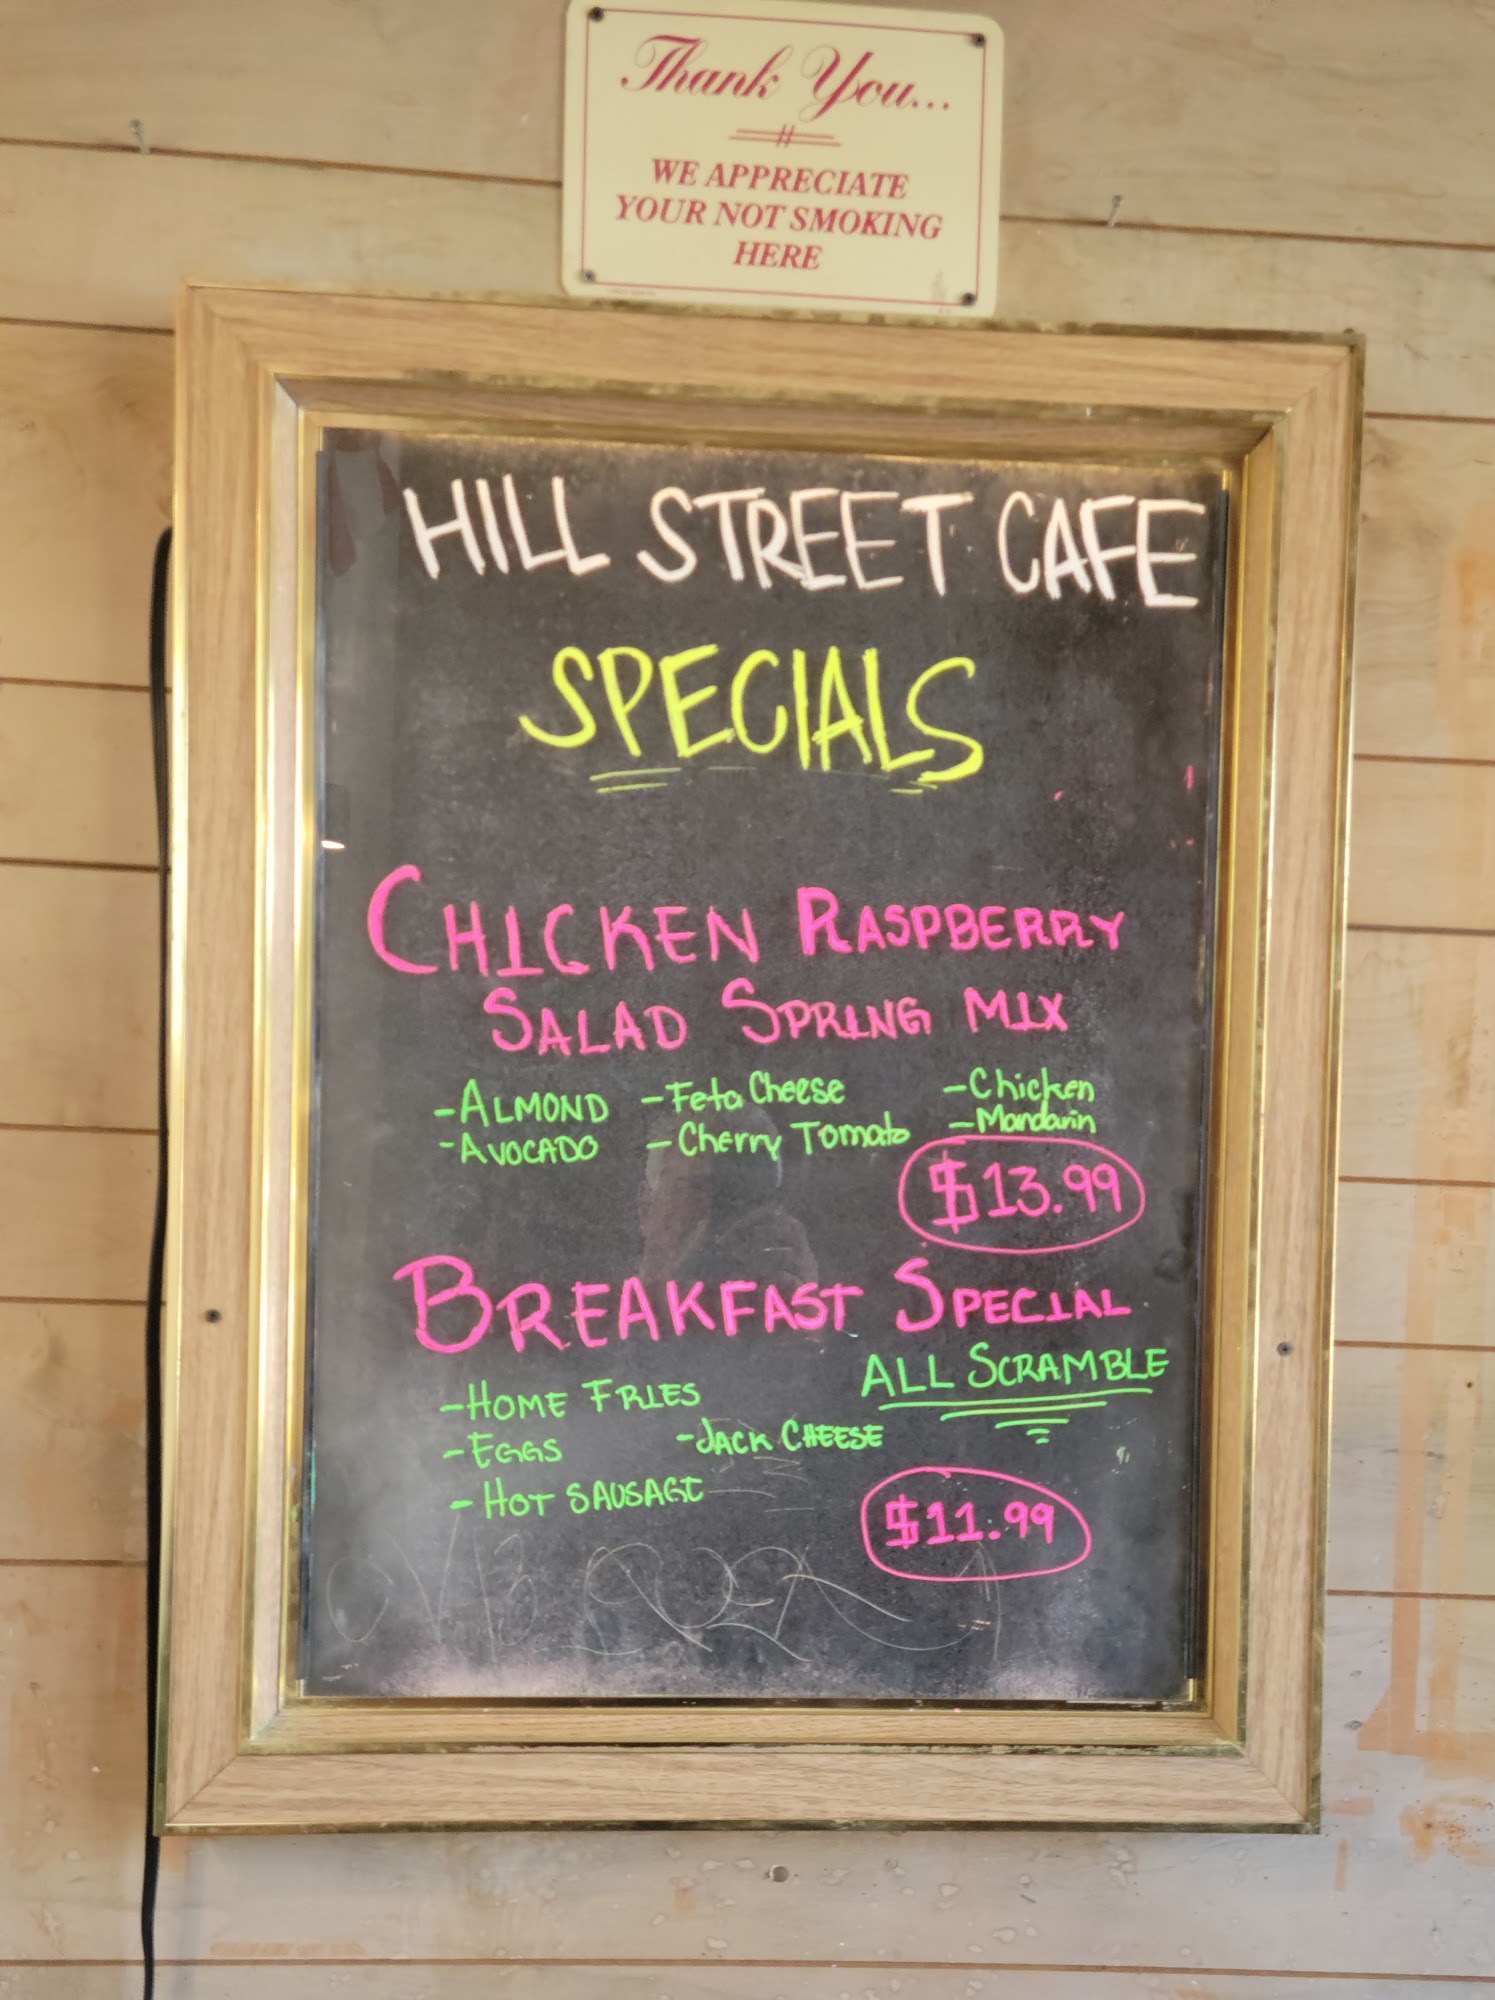 Thank You...
WE APPRECIATE
YOUR NOT SMOKING
HERE
HILL STREET CAFE
SPECIALS
CHICKEN RASPBERRY
SALAD SPRING MIX
-ALMOND -Feta Cheese -Chicken
-AVOCADO -Cherry Tomato -Mandarin
$13.99
BREAKFAST SPECIAL
ALL SCRAMBLE
-HOME FRIES
-EGGS -JACK CHEESE
-HOT SAUSAGE
$11.99